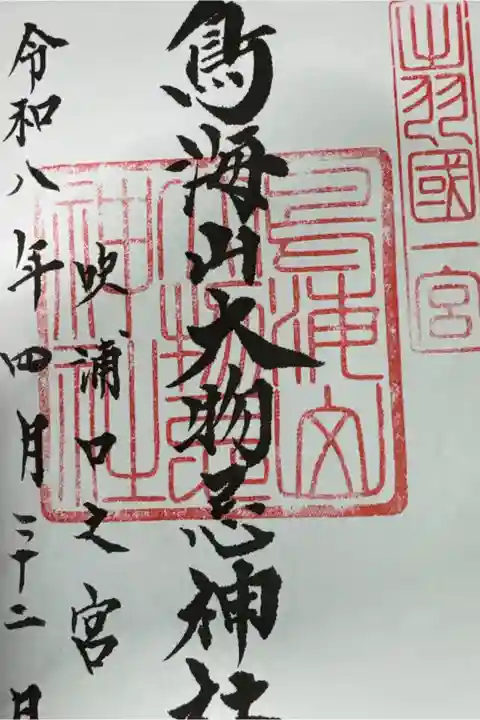 出羽國一宮
鳥海山
大物忌
神社
鳥海山大物忌神社
吹浦口之宮
令和八年四月二十二日